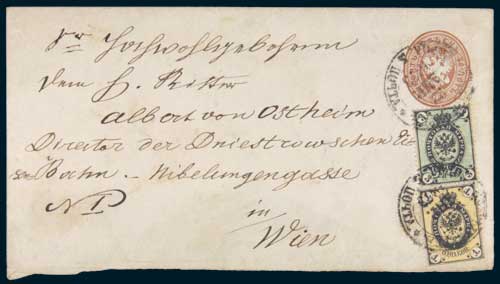 Sr Hochwohlgeboren
dem H. Ritter
Albert von Ostheim
Director der Dniestrowschen &
Bahn - Nibelungengasse
NP
in
Wien